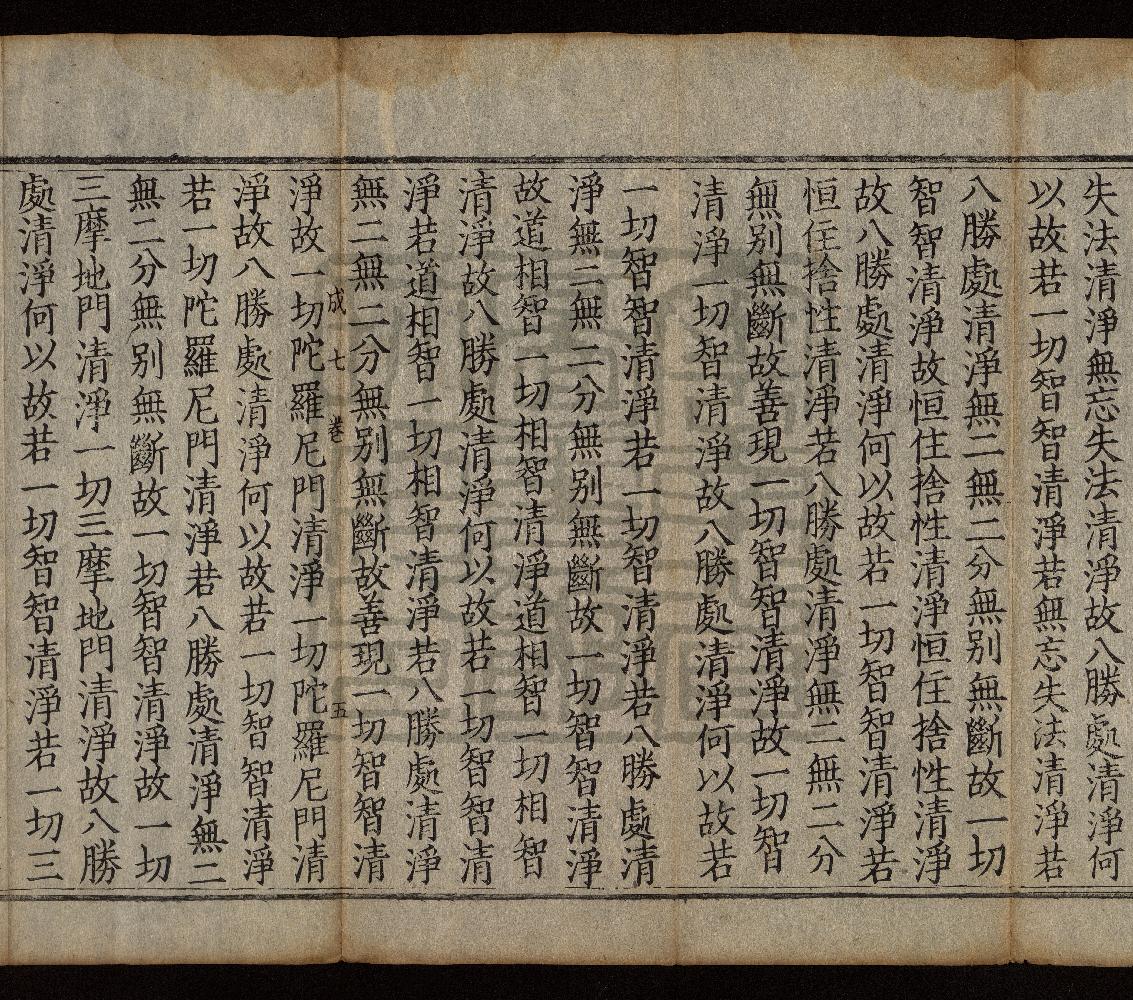 失法清淨無忘失法清淨故八勝處清淨何
以故若一切智智清淨若無忘失法清淨若
八勝處清淨無二無二分無別無斷故一切
智智清淨故恒住捨性清淨恒住捨性清淨
故八勝處清淨何以故若一切智智清淨若
恒住捨性清淨若八勝處清淨無二無二分
無別無斷故善現一切智智清淨故一切智
清淨一切智清淨故八勝處清淨何以故若
一切智智清淨若一切智清淨若八勝處清
淨無二無二分無別無斷故一切智智清淨
故道相智一切相智清淨道相智一切相智
清淨故八勝處清淨何以故若一切智智清
淨若道相智一切相智清淨若八勝處清淨
無二無二分無別無斷故善現一切智智清
成 七 卷 五
淨故一切陀羅尼門清淨一切陀羅尼門清
淨故八勝處清淨何以故若一切智智清淨
若一切陀羅尼門清淨若八勝處清淨無二
無二分無別無斷故一切智智清淨故一切
三摩地門清淨一切三摩地門清淨故八勝
處清淨何以故若一切智智清淨若一切三